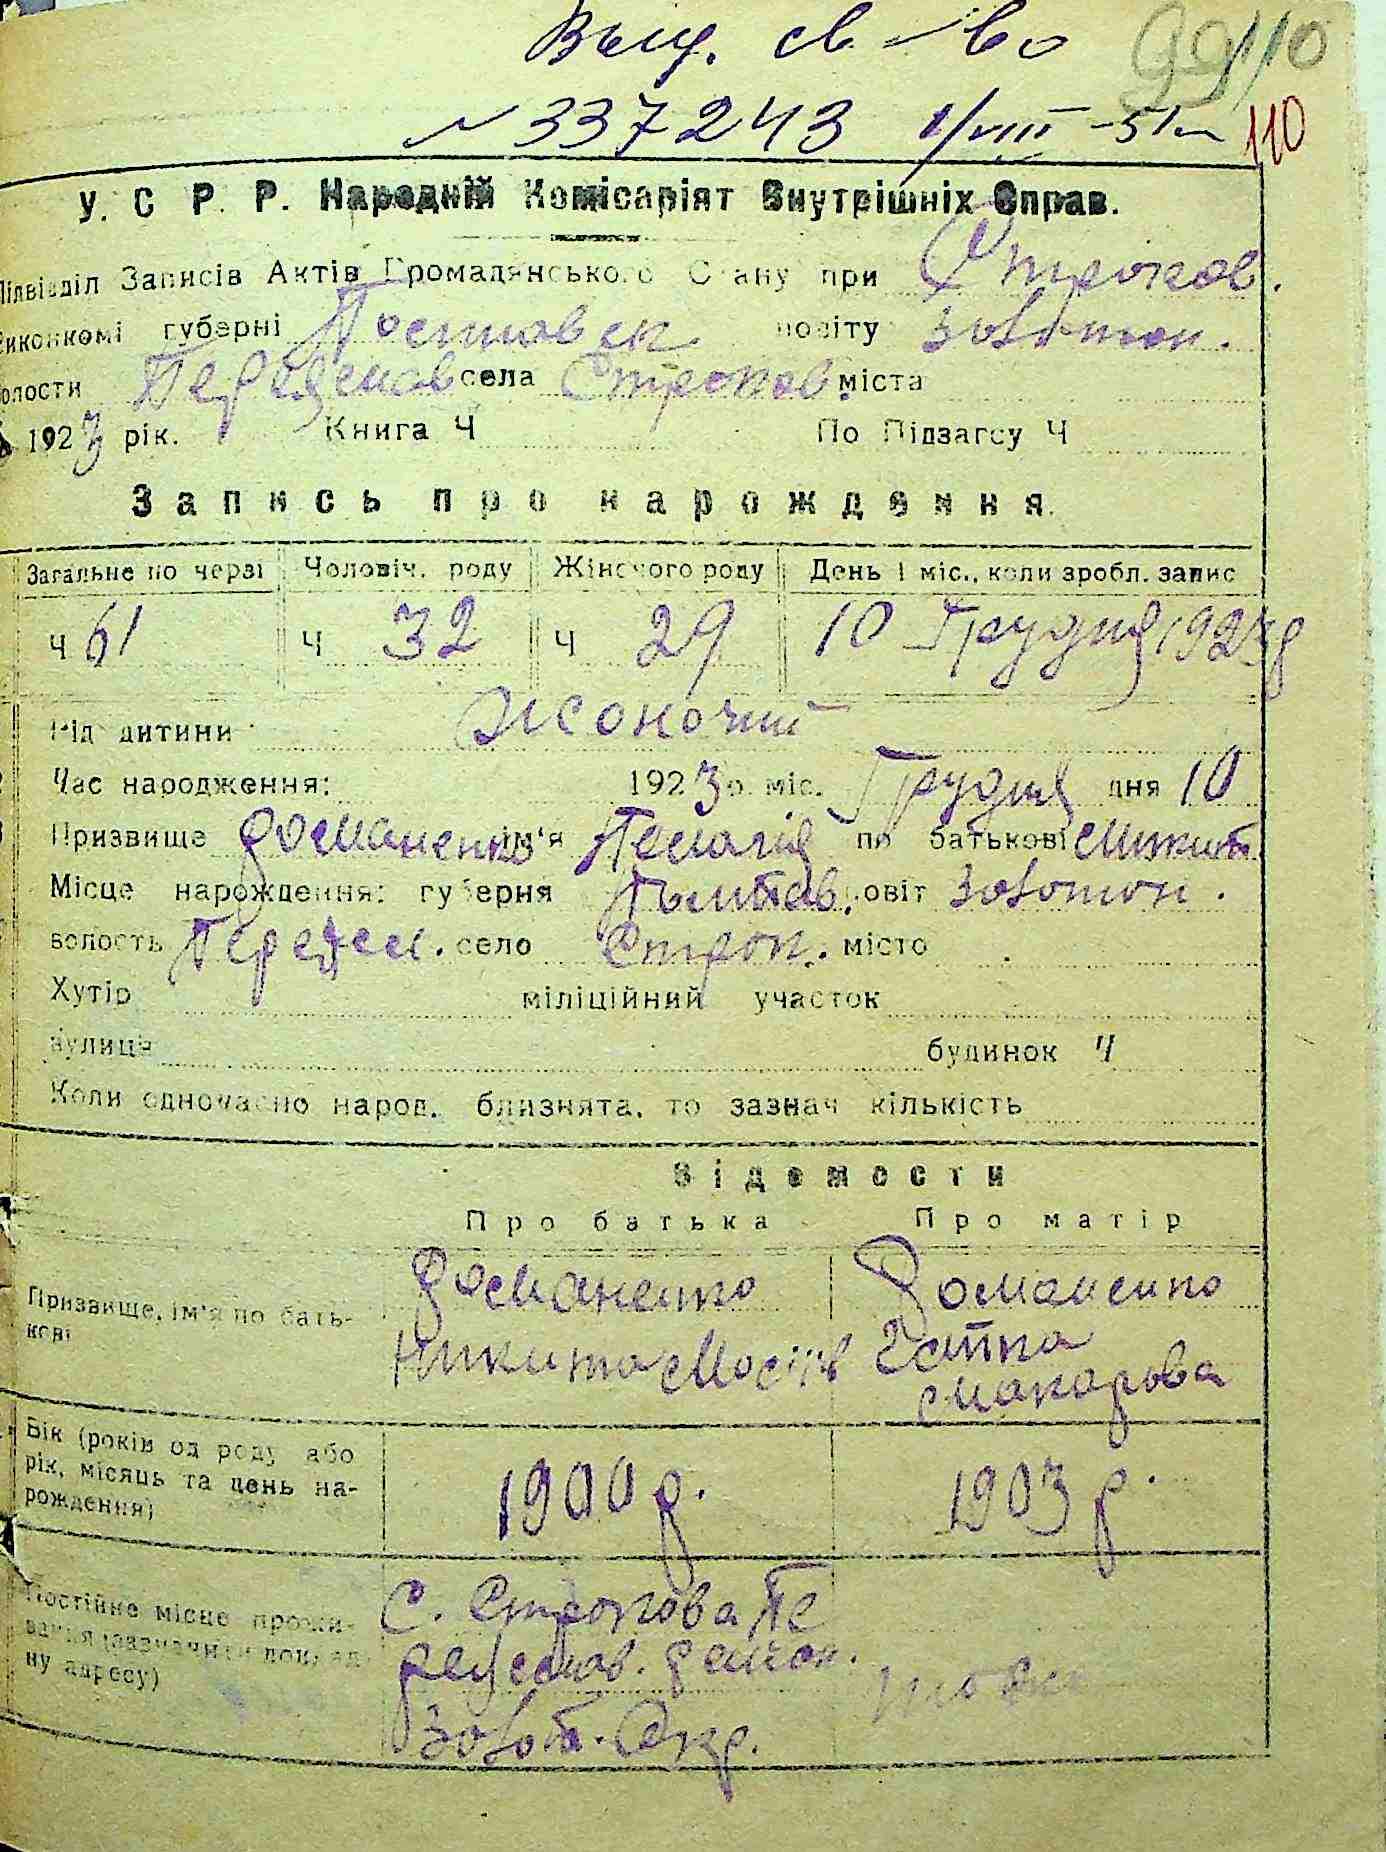 Выд. св-во 99 110
№ 337243 1/VIII-51 110
У. С. Р. Р. Народній Комісаріят Внутрішніх Справ.
Підвідділ Записів Актів Громадянського Стану при Строков.
Виконкомі губерні Полтавск повіту Золотон.
волости села Строков. міста
В 1923 рік. Книга Ч По Підзагсу Ч
Запись про нарождення.
Загальне по черзі Чоловіч. роду Жіночого роду День і міс., коли зробл. запис
Ч 61 Ч 32 Ч 29 10 Грудня 1923 р
Рід дитини Жоночий
Час народження: 1923 р. міс. Грудня дня 10
Призвище Романенко ім'я Пелагія по батькові Микит.
Місце нарождення: губерня Полтав. повіт Золотон.
волость село Строк. місто
Хутір міліційний участок
вулиця будинок Ч
Коли одночасно народ. близнята, то зазнач кількість
Відемости
Про батька Про матір
Призвище, ім'я по бать-
кові
Романенко Романенко
Никита Мосіїв
Макарова
Вік (років од роду або
рік, місяць та день на-
рождення)
1900 р. 1903 р.
Постійне місце прожи-
вання (зазначити доклад-
ну адресу)
С. Строкова Пе
район.
Золот. Окр.